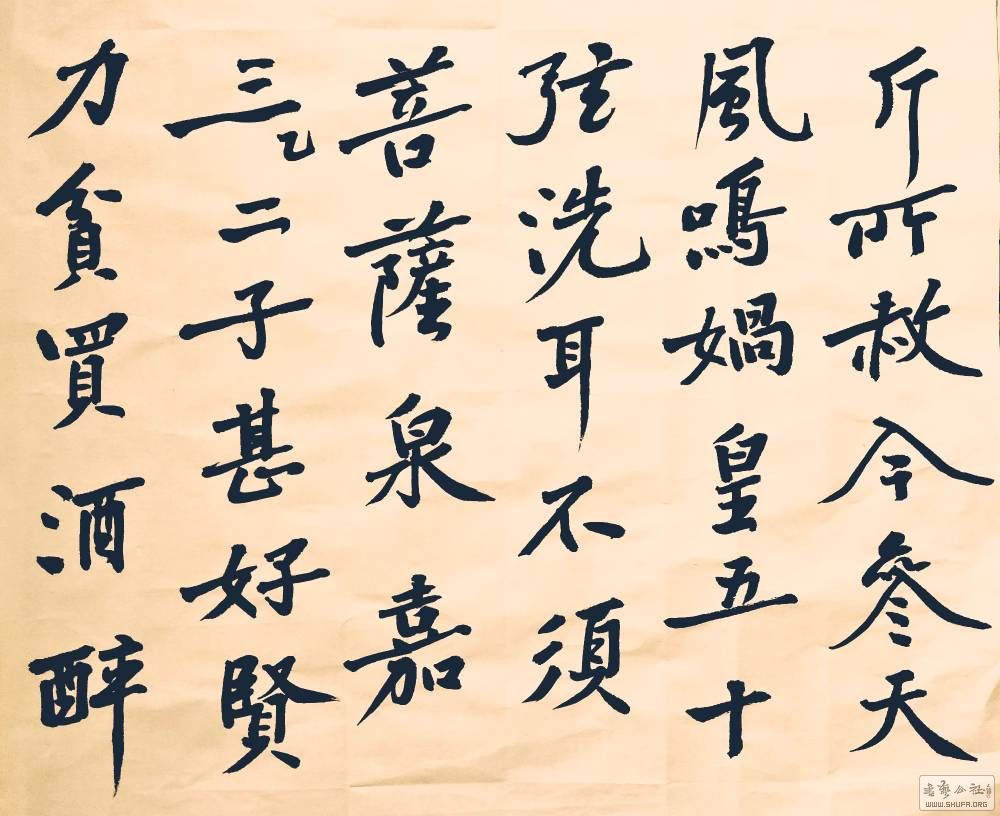 斤所赦今參天
風鳴媧皇五十
弦洗耳不須
菩薩泉嘉
三乙二子甚好賢
力貧買酒醉
书艺公社
WWW.SHUFA.ORG